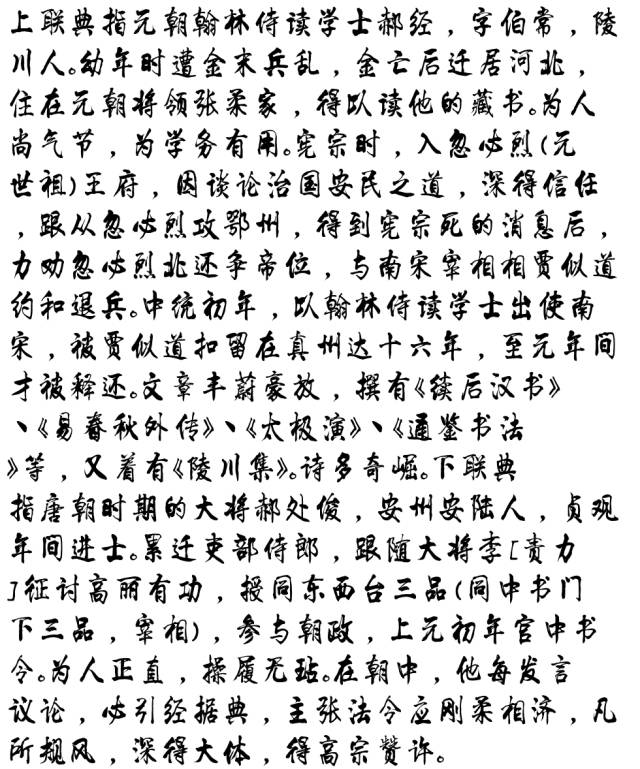 上联典指元朝翰林侍读学士郝经，字伯常，陵
川人。幼年时遭金末兵乱，金亡后迁居河北，
住在元朝将领张柔家，得以读他的藏书。为人
尚气节，为学务有用。宪宗时，入忽必烈(元
世祖)王府，因谈论治国安民之道，深得信任
，跟从忽必烈攻鄂州，得到宪宗死的消息后，
力劝忽必烈北还争帝位，与南宋宰相相贾似道
约和退兵。中统初年，以翰林侍读学士出使南
宋，被贾似道扣留在真州达十六年，至元年间
才被释还。文章丰蔚豪放，撰有《续后汉书》
、《易春秋外传》、《太极演》、《通鉴书法
》等，又着有《陵川集》。诗多奇崛。下联典
指唐朝时期的大将郝处俊，安州安陆人，贞观
年间进士。累迁吏部侍郎，跟随大将李[责力
]征讨高丽有功，授同东西台三品(同中书门
下三品，宰相)，参与朝政，上元初年官中书
令。为人正直，操履无玷。在朝中，他每发言
议论，必引经据典，主张法令应刚柔相济，凡
所规风，深得大体，得高宗赞许。